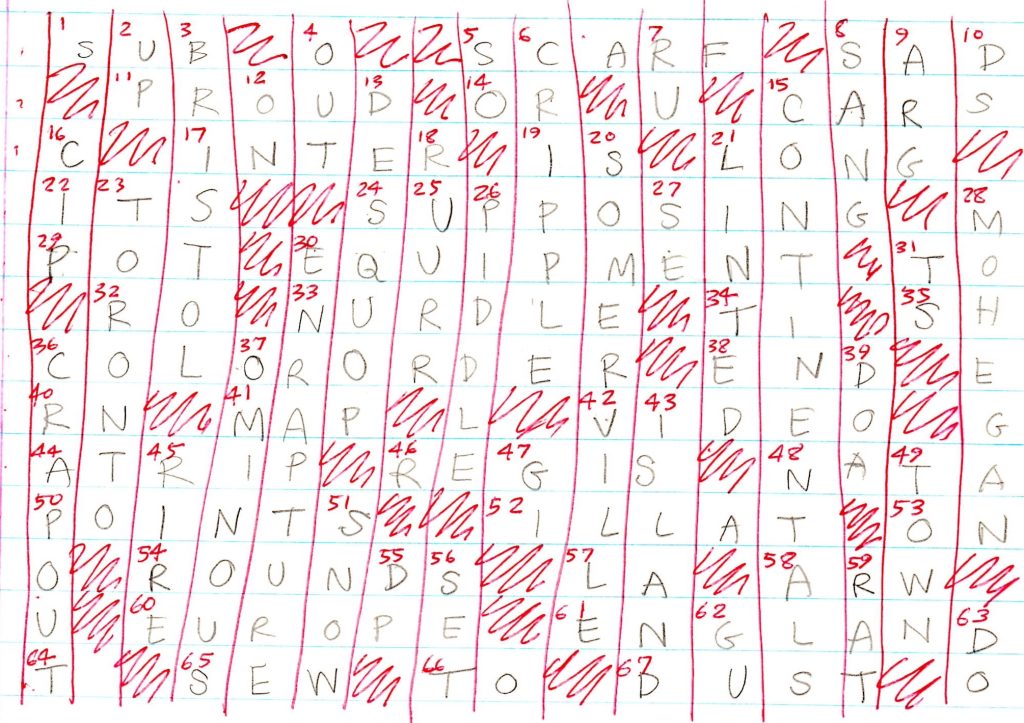 1 S 2 U 3 B 4 O 5 S 6 C A 7 R F 8 S 9 A 10 D
11 P R 12 O U 13 D 14 O R U 15 C A R S
16 C 17 I N T E 18 R 19 I 20 S 21 L O N G
22 I 23 T S 24 S 25 U 26 P P O 27 S I N G 28 M
29 P O T 30 E Q U I P M E N T 31 T O
32 R O 33 N U R D L E 34 T I 35 S H
36 C O L 37 O R O R D E R 38 E N 39 D E
40 R N 41 M A P L 42 V 43 I D E O G
44 A T 45 R I P 46 R E 47 G I S 48 N A 49 T A
50 P O I N T 51 S 52 I L L A T 53 O N
O 54 R O U N 55 D 56 S 57 L A 58 A 59 R W
U 60 E U R O P E 61 E N 62 G L A N 63 D
64 T 65 S E W 66 T O 67 B U S T O